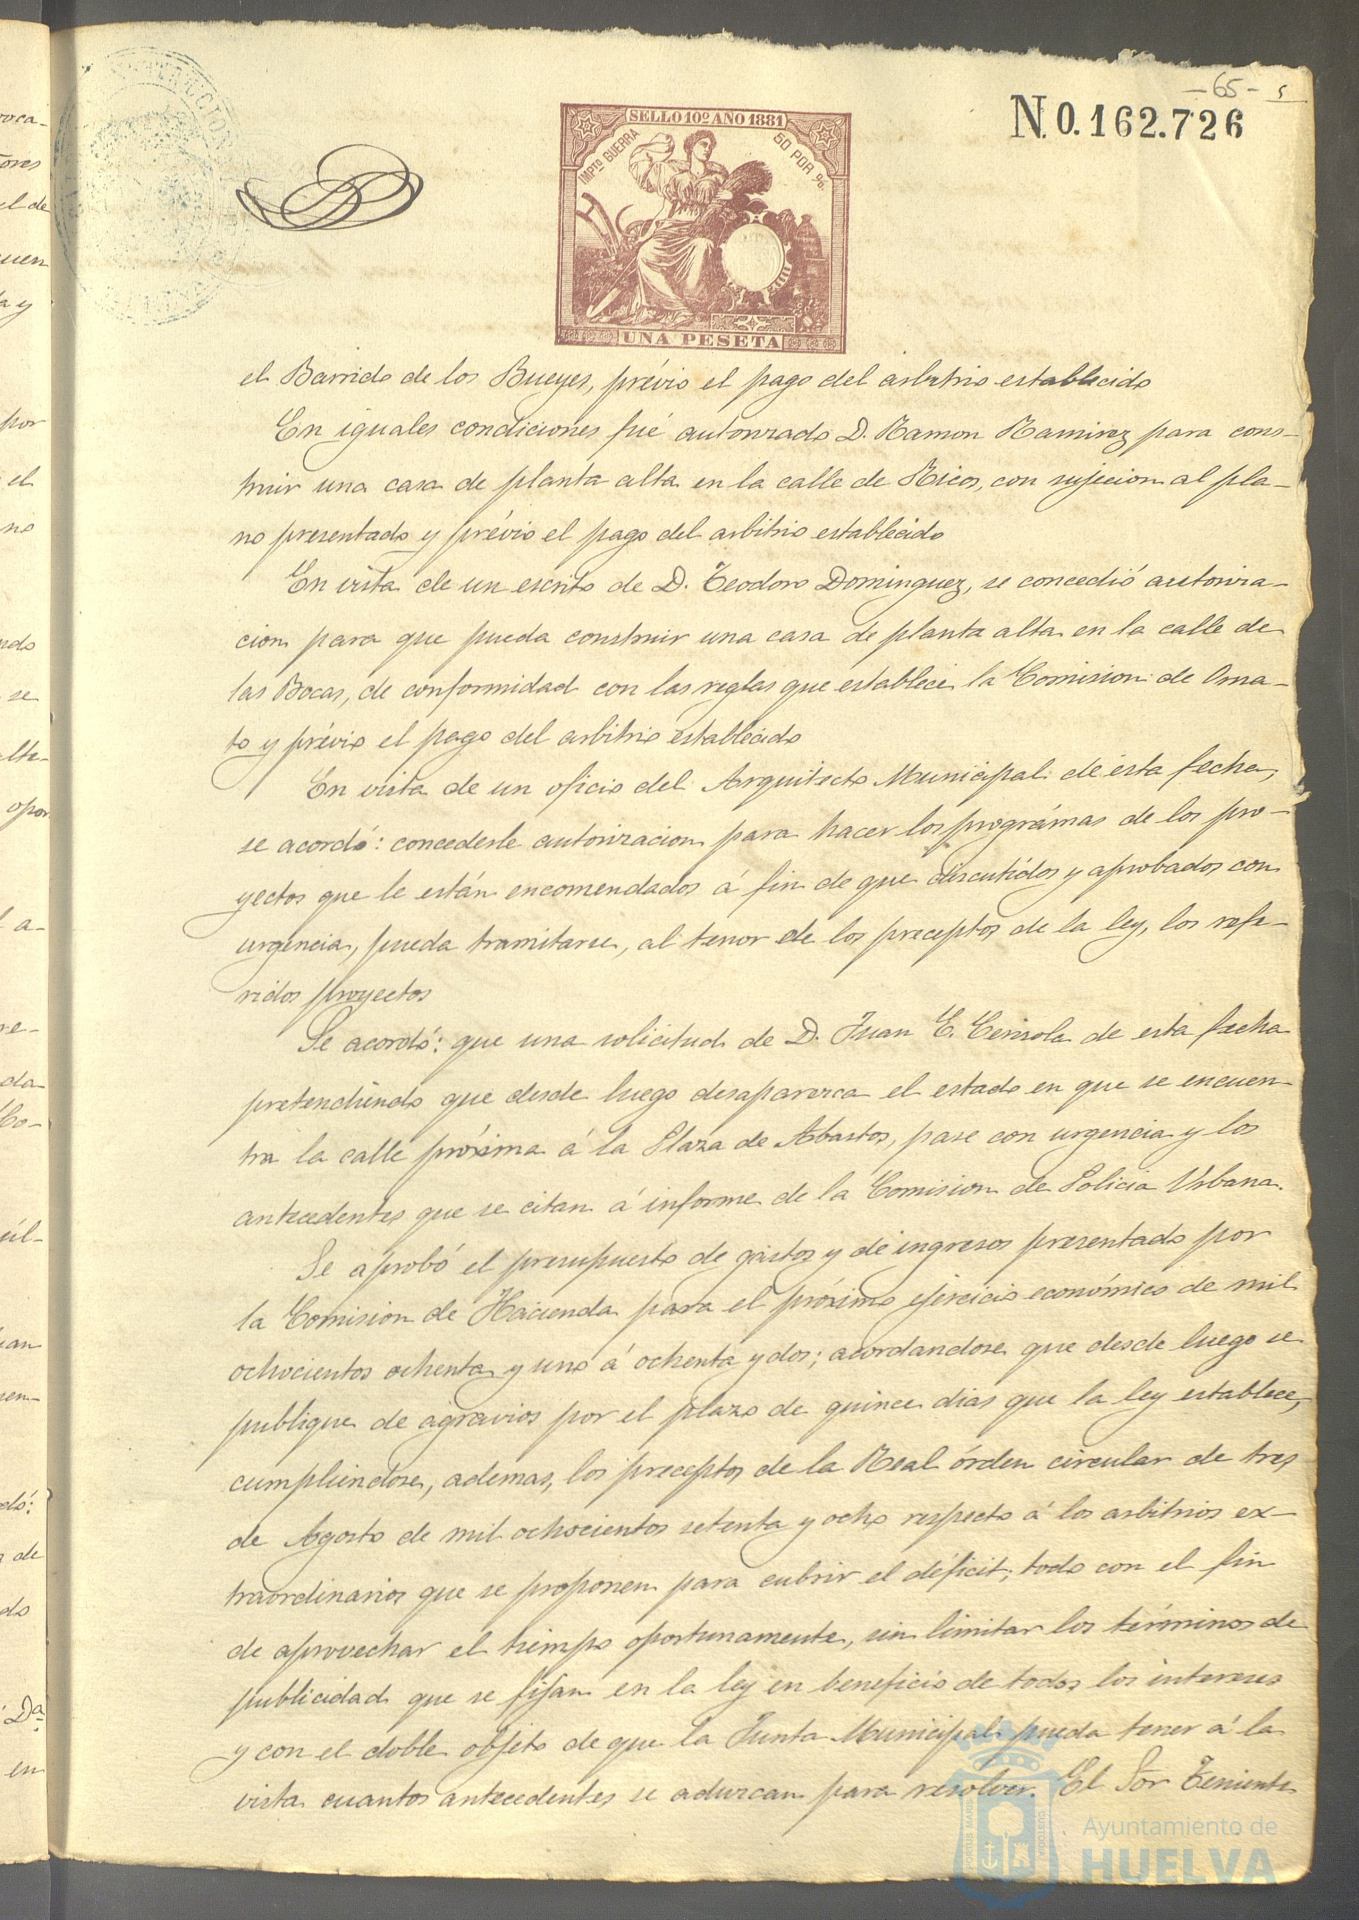 -65- 5
N. 0.162.726
SELLO 10º AÑO 1881
IMPTO GUERRA
50 POR %.
UNA PESETA
el Barrido de los Bueyes, prévio el pago del arbitrio establecido
En iguales condiciones fué autorizado D. Ramon Ramirez para cons-
truir una casa de planta alta en la calle de Ricos, con sujecion al pla-
no presentado y prévio el pago del arbitrio establecido
En vista de un escrito de D. Teodoro Dominguez, se concedió autoriza-
cion para que pueda construir una casa de planta alta en la calle de
las Bocas, de conformidad con las reglas que establece la Comision de Orna-
to y prévio el pago del arbitrio establecido
En vista de un oficio del Arquitecto Municipal de esta fecha,
se acordó: concederle autorizacion para hacer los prográmas de los pro-
yectos que le están encomendados á fin de que discutidos y aprobados con
urgencia, pueda tramitarse, al tenor de los preceptos de la ley, los refe-
ridos proyectos
Se acordó: que una solicitud de D. Juan E. Cerisola de esta fecha
pretendiendo que desde luego desaparezca el estado en que se encuen-
tra la calle próxima á la Plaza de Abastos, pase con urgencia y los
antecedentes que se citan á informe de la Comision de Policia Urbana.
Se aprobó el presupuesto de gastos y de ingresos presentado por
la Comision de Hacienda para el próximo ejercicio económico de mil
ochocientos ochenta y uno á ochenta y dos; acordandose que desde luego se
publique de agravios por el plazo de quince dias que la ley establece,
cumpliendose, ademas, los preceptos de la Real órden circular de tres
de Agosto de mil ochocientos setenta y ocho respecto á los arbitrios ex-
traordinarios que se proponen para cubrir el déficit; todo con el fin
de aprovechar el tiempo oportunamente, sin limitar los términos de
publicidad que se fijan en la ley en beneficio de todos los intereses
y con el doble objeto de que la Junta Municipal pueda tener á la
vista cuantos antecedentes se aduzcan para resolver. El Sor Teniente
Ayuntamiento de
HUELVA